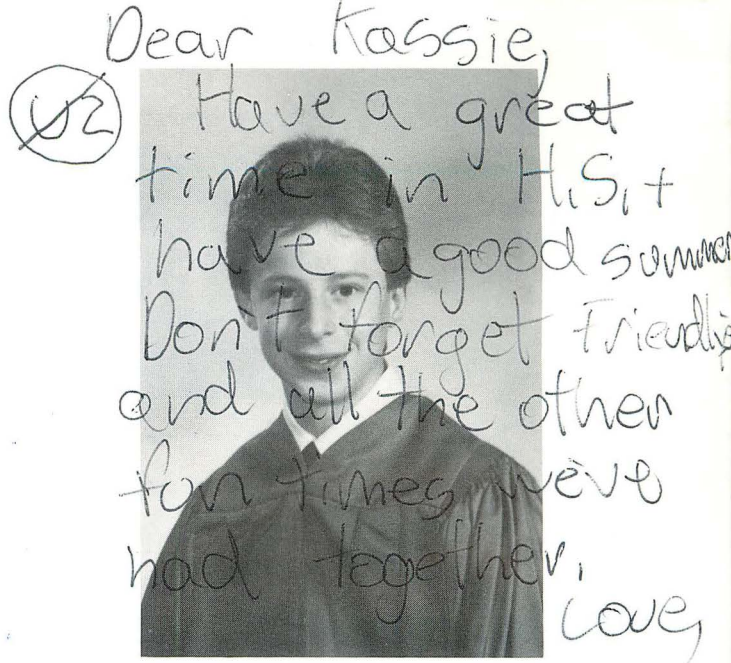 Dear Kassie,
U2
Have a great
time in H.S. +
have a good summer
Don't forget Friendlies
and all the other
fun times we've
had together.
Love,